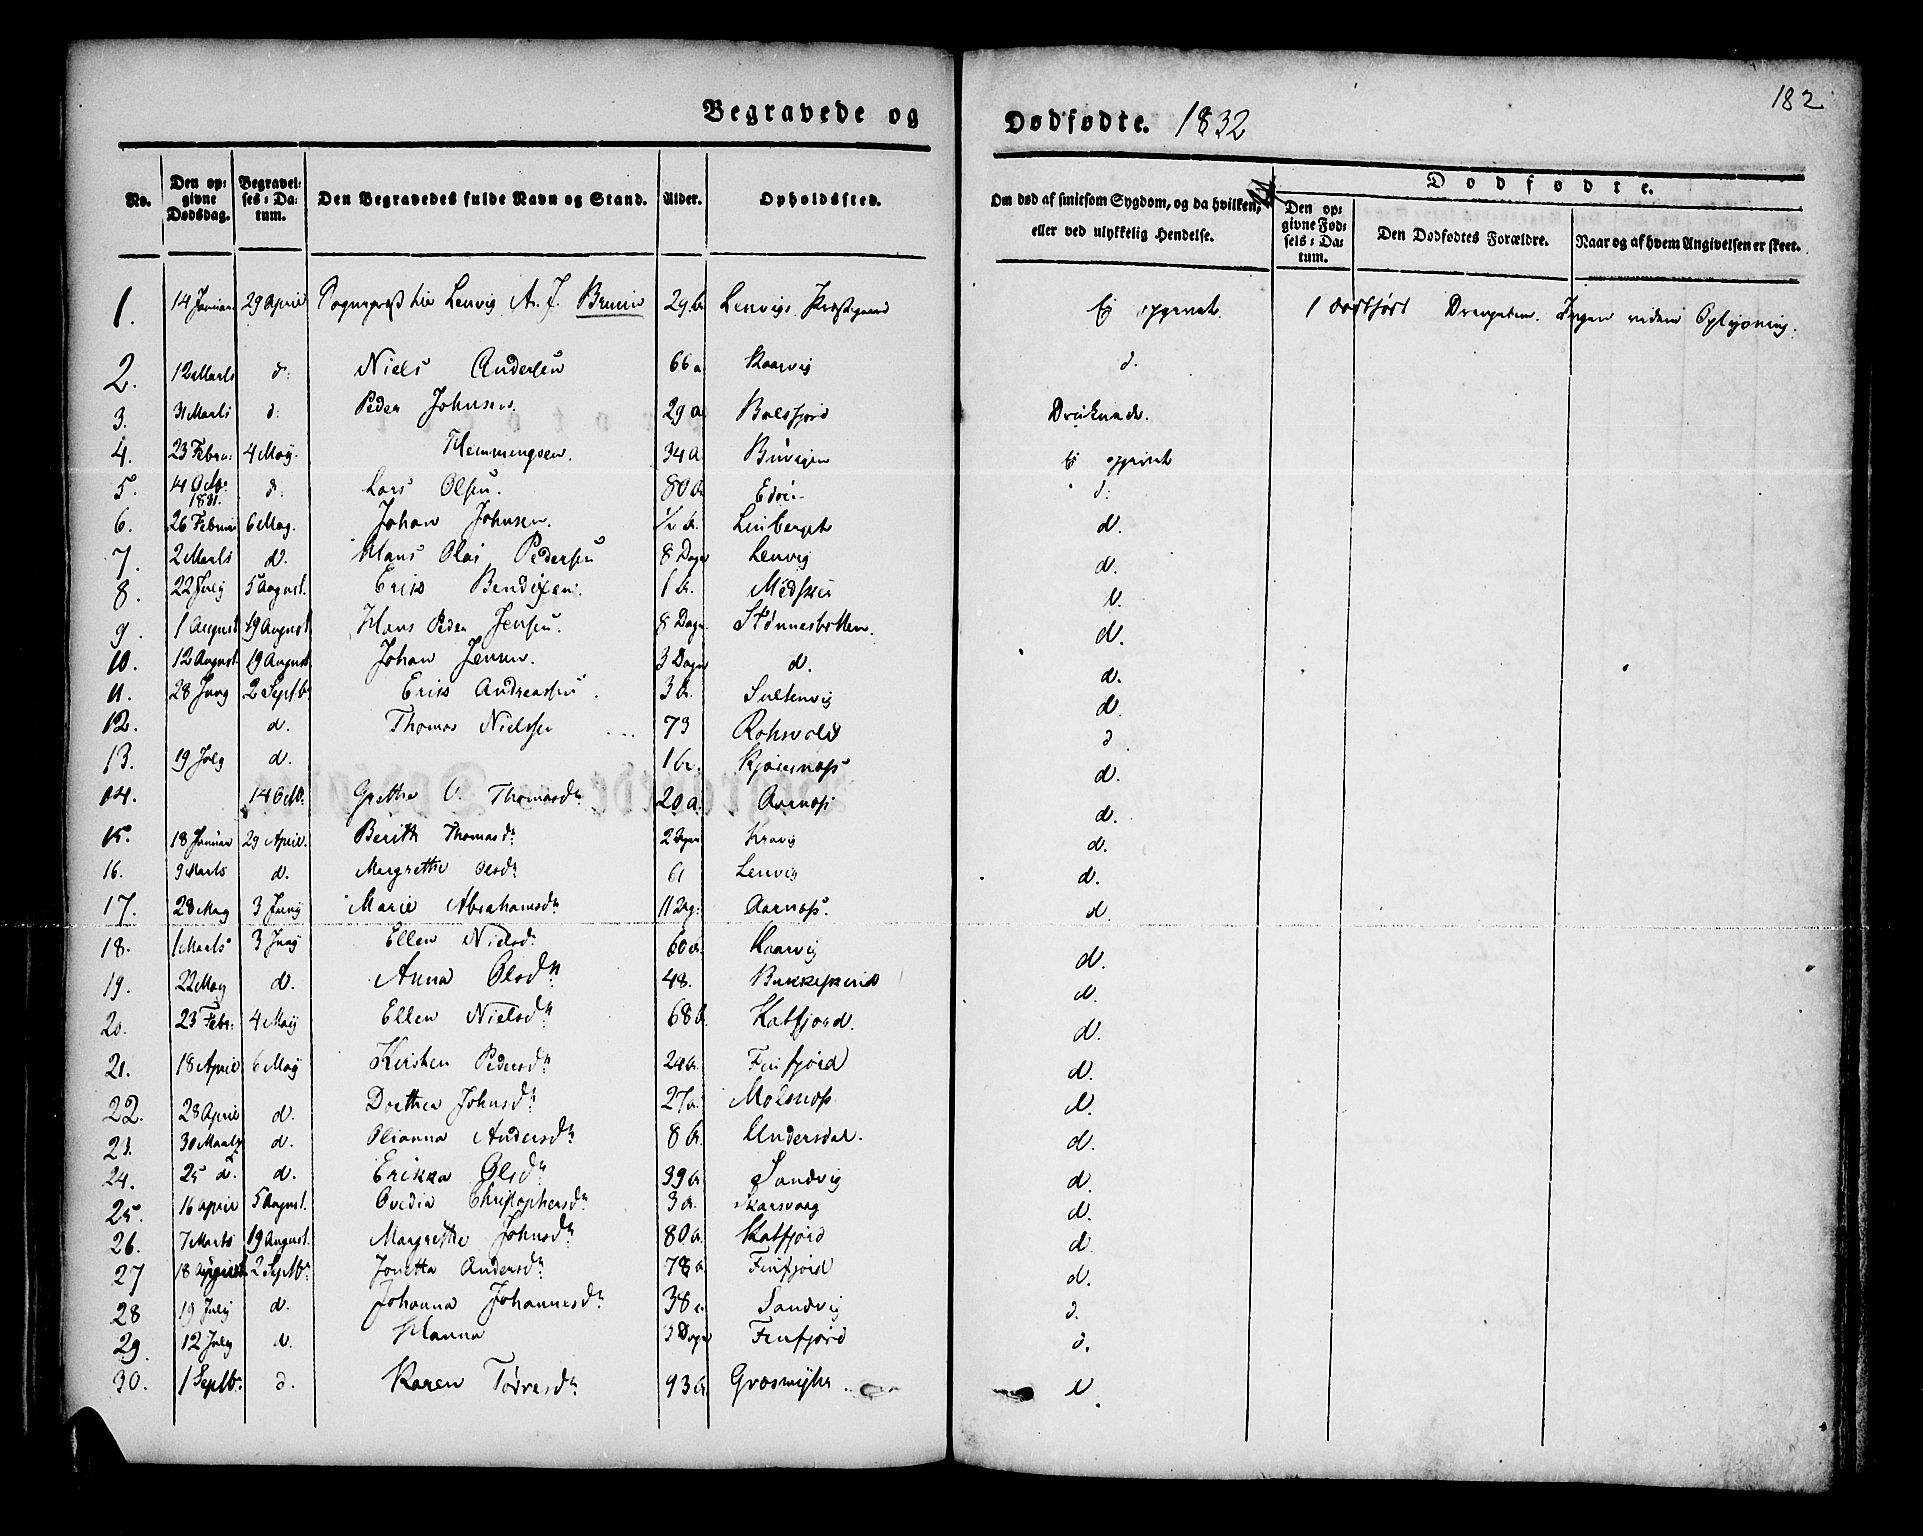 182
Begravede og Dødfødte. 1832
No. | Den opgivne Dødsdag. | Begravelses-Datum. | Den Begravedes fulde Navn og Stand. | Alder. | Opholdssted. | Om død af smitsom Sygdom, og da hvilken, eller ved ulykkelig Hendelse. | Dødfødte. Den opgivne Fødsels-Datum. | Den Dødfødtes Forældre. | Naar og af hvem Angivelsen er skeet.
1. 14 Januar 29 April Sognepræst til Lenvig A. J. Bruun 29 Lenvigs Præstegaard Ei opgivet 1 dødfødt Drengebarn. Ingen videre Oplysning.
2. 12 Marts d: Niels Andersen 66 a Kaarvig d.
3. 31 Marts d: Peder Johnsen 29 a Balsfjord Druknede.
4. 23 Febru: 4 May. Hemmingsen. 34 a Buvigen Ei opgivet
5. 14 Octb: 1831. d: Lars Olsen. 80 d:
6. 26 Februar 6 May. Johan Johnsen. 1/2 a. Leirberget d.
7. 2 Marts d. Hans Olai Pedersen 8 Dage Lenvig d.
8. 22 July 5 August. Erik Bendixen. 1 a. d.
9. 1 August 19 August Hans Peder Jensen. 8 Dage Stønnesbotten. d.
10. 12 August 19 August Johan Jensen. 3 Dage d. d.
11. 28 Juny 2 Septbr Erik Andreassen. 3 a. Sultenvig d.
12. d. Thomas Nielssen ... 73 Rohsvold d.
13. 19 July d. 1 a. d.
14. 14 Octb. Grethe C. Thomasdr 20 a. Aarnæss d.
15. 18 Januar 29 April. Berith Thomasdr 2 Dage Kravig d.
16. 9 Marts d. Margrethe Olsdr 61 Lenvig d.
17. 28 May 3 Juny Marie Abrahamsdr 11 Dg: Aarnæss. d.
18. 1 Marts 3 Juny Ellen Nielsd. 60 a. Kaarvig d.
19. 22 May d. Anna Olsdr 48. Bukkeskind d.
20. 23 Febr: 4 May Ellen Nielsdr 68 a. Katfjord. d.
21. 18 April 6 May Kirsten Pedersdr a. Finfjord d.
22. 28 April d. Dorthea Johnsdr 27 a. Molsnæss d.
23. 30 Marts d. Olianna Andersdr 8 a. Undersdal. d.
24. 25 d. d. Erikka Olsdr 39 a Sandvig d.
25. 16 April 5 August. Ovedia Christophersdr 3 a. Skarsvaag d.
26. 7 Marts 19 August. Margrethe Johnsdr 80 a. Katfjord d.
27 18 August 2 Septbr Jonetta Andersdr 78 a Finfjord d.
28 19 July d. Johanna Johannesdr 38 a Sandvig d.
29. 12 July d. Hanna 3 Dage Finfjord d.
30. 1 Septbr. d. Karen Tørresdr 93 a. d.